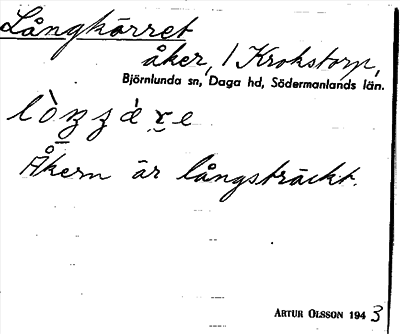 Långkärret
åker, / Krokstorp,
Björnlunda sn, Daga hd, Södermanlands län.
Åkern är långsträckt.
ARTUR OLSSON 1943